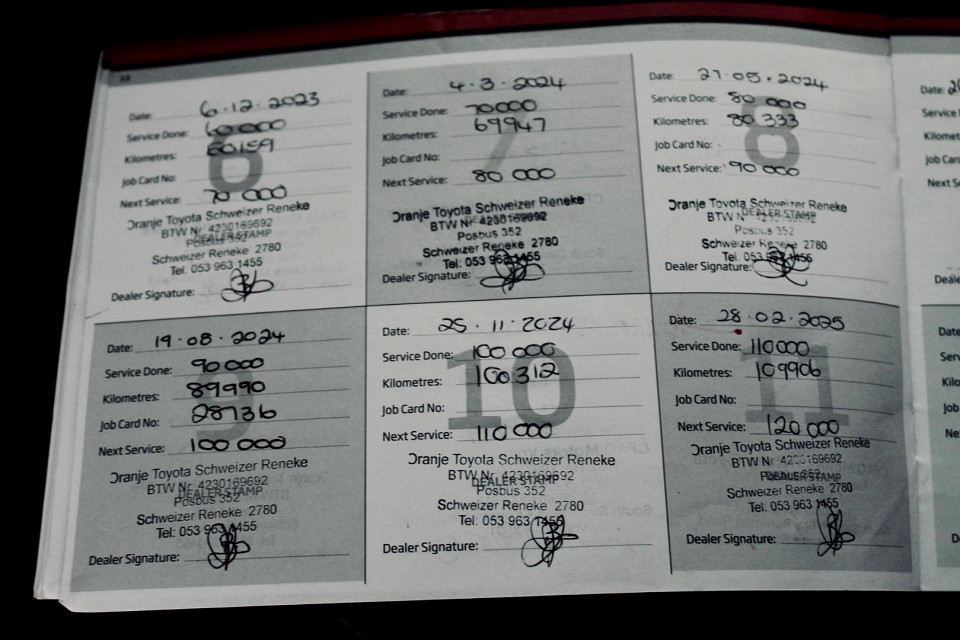 Date: 6.12.2023
Service Done: 60000
Kilometres: 60159
Job Card No:
Next Service: 70 000
Oranje Toyota Schweizer Reneke
BTW Nr 4230169692
DEALER STAMP
Posbus 352
Schweizer Reneke 2780
Tel. 053 963 1455
Dealer Signature:
Date: 4.3.2024
Service Done: 70000
Kilometres: 69947
7
Job Card No:
Next Service: 80 000
Oranje Toyota Schweizer Reneke
BTW Nr 4230169692
Posbus 352
Schweizer Reneke 2780
Tel: 053 963 1455
Dealer Signature:
Date: 27.05.2024
Service Done: 80 000
Kilometres: 80 333
8
Job Card No:
Next Service: 90 000
Oranje Toyota Schweizer Reneke
BTW N
DEALER STAMP
Posbus 352
Schweizer Reneke 2780
Tel. 053 963 1455
Dealer Signature:
Date: 19.08.2024
Service Done: 90 000
Kilometres: 89990
Job Card No: 28736
Next Service: 100 000
Oranje Toyota Schweizer Reneke
BTW Nr 4230169692
DEALER STAMP
Posbus 352
Schweizer Reneke 2780
Tel: 053 963 1455
Dealer Signature:
Date: 25.11.2024
Service Done: 100 000
Kilometres: 100312
10
Job Card No:
Next Service: 110 000
Oranje Toyota Schweizer Reneke
BTW Nr 4230169692
DEALER STAMP
Posbus 352
Schweizer Reneke 2780
Tel: 053 963 1455
Dealer Signature:
Date: 28.02.2025
Service Done: 110000
Kilometres: 109906
11
Job Card No:
Next Service: 120 000
Oranje Toyota Schweizer Reneke
BTW Nr 4230169692
DEALER STAMP
Schweizer Reneke 2780
Tel: 053 963 1455
Dealer Signature:
Date: